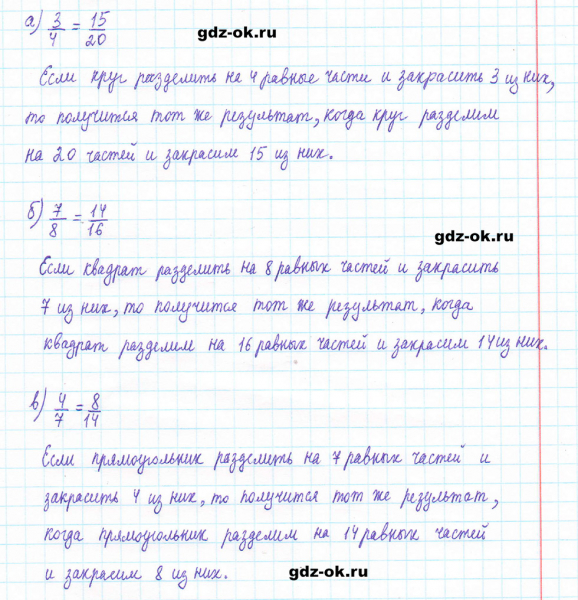 а) 3/4 = 15/20
gdz-ok.ru
Если круг разделить на 4 равные части и закрасить 3 из них,
то получится тот же результат, когда круг разделим
на 20 частей и закрасим 15 из них.
б) 7/8 = 14/16
gdz-ok.ru
Если квадрат разделить на 8 равных частей и закрасить
7 из них, то получится тот же результат, когда
квадрат разделим на 16 равных частей и закрасим 14 из них.
в) 4/7 = 8/14
Если прямоугольник разделить на 7 равных частей и
закрасить 4 из них, то получится тот же результат,
когда прямоугольник разделим на 14 равных частей
и закрасим 8 из них.
gdz-ok.ru